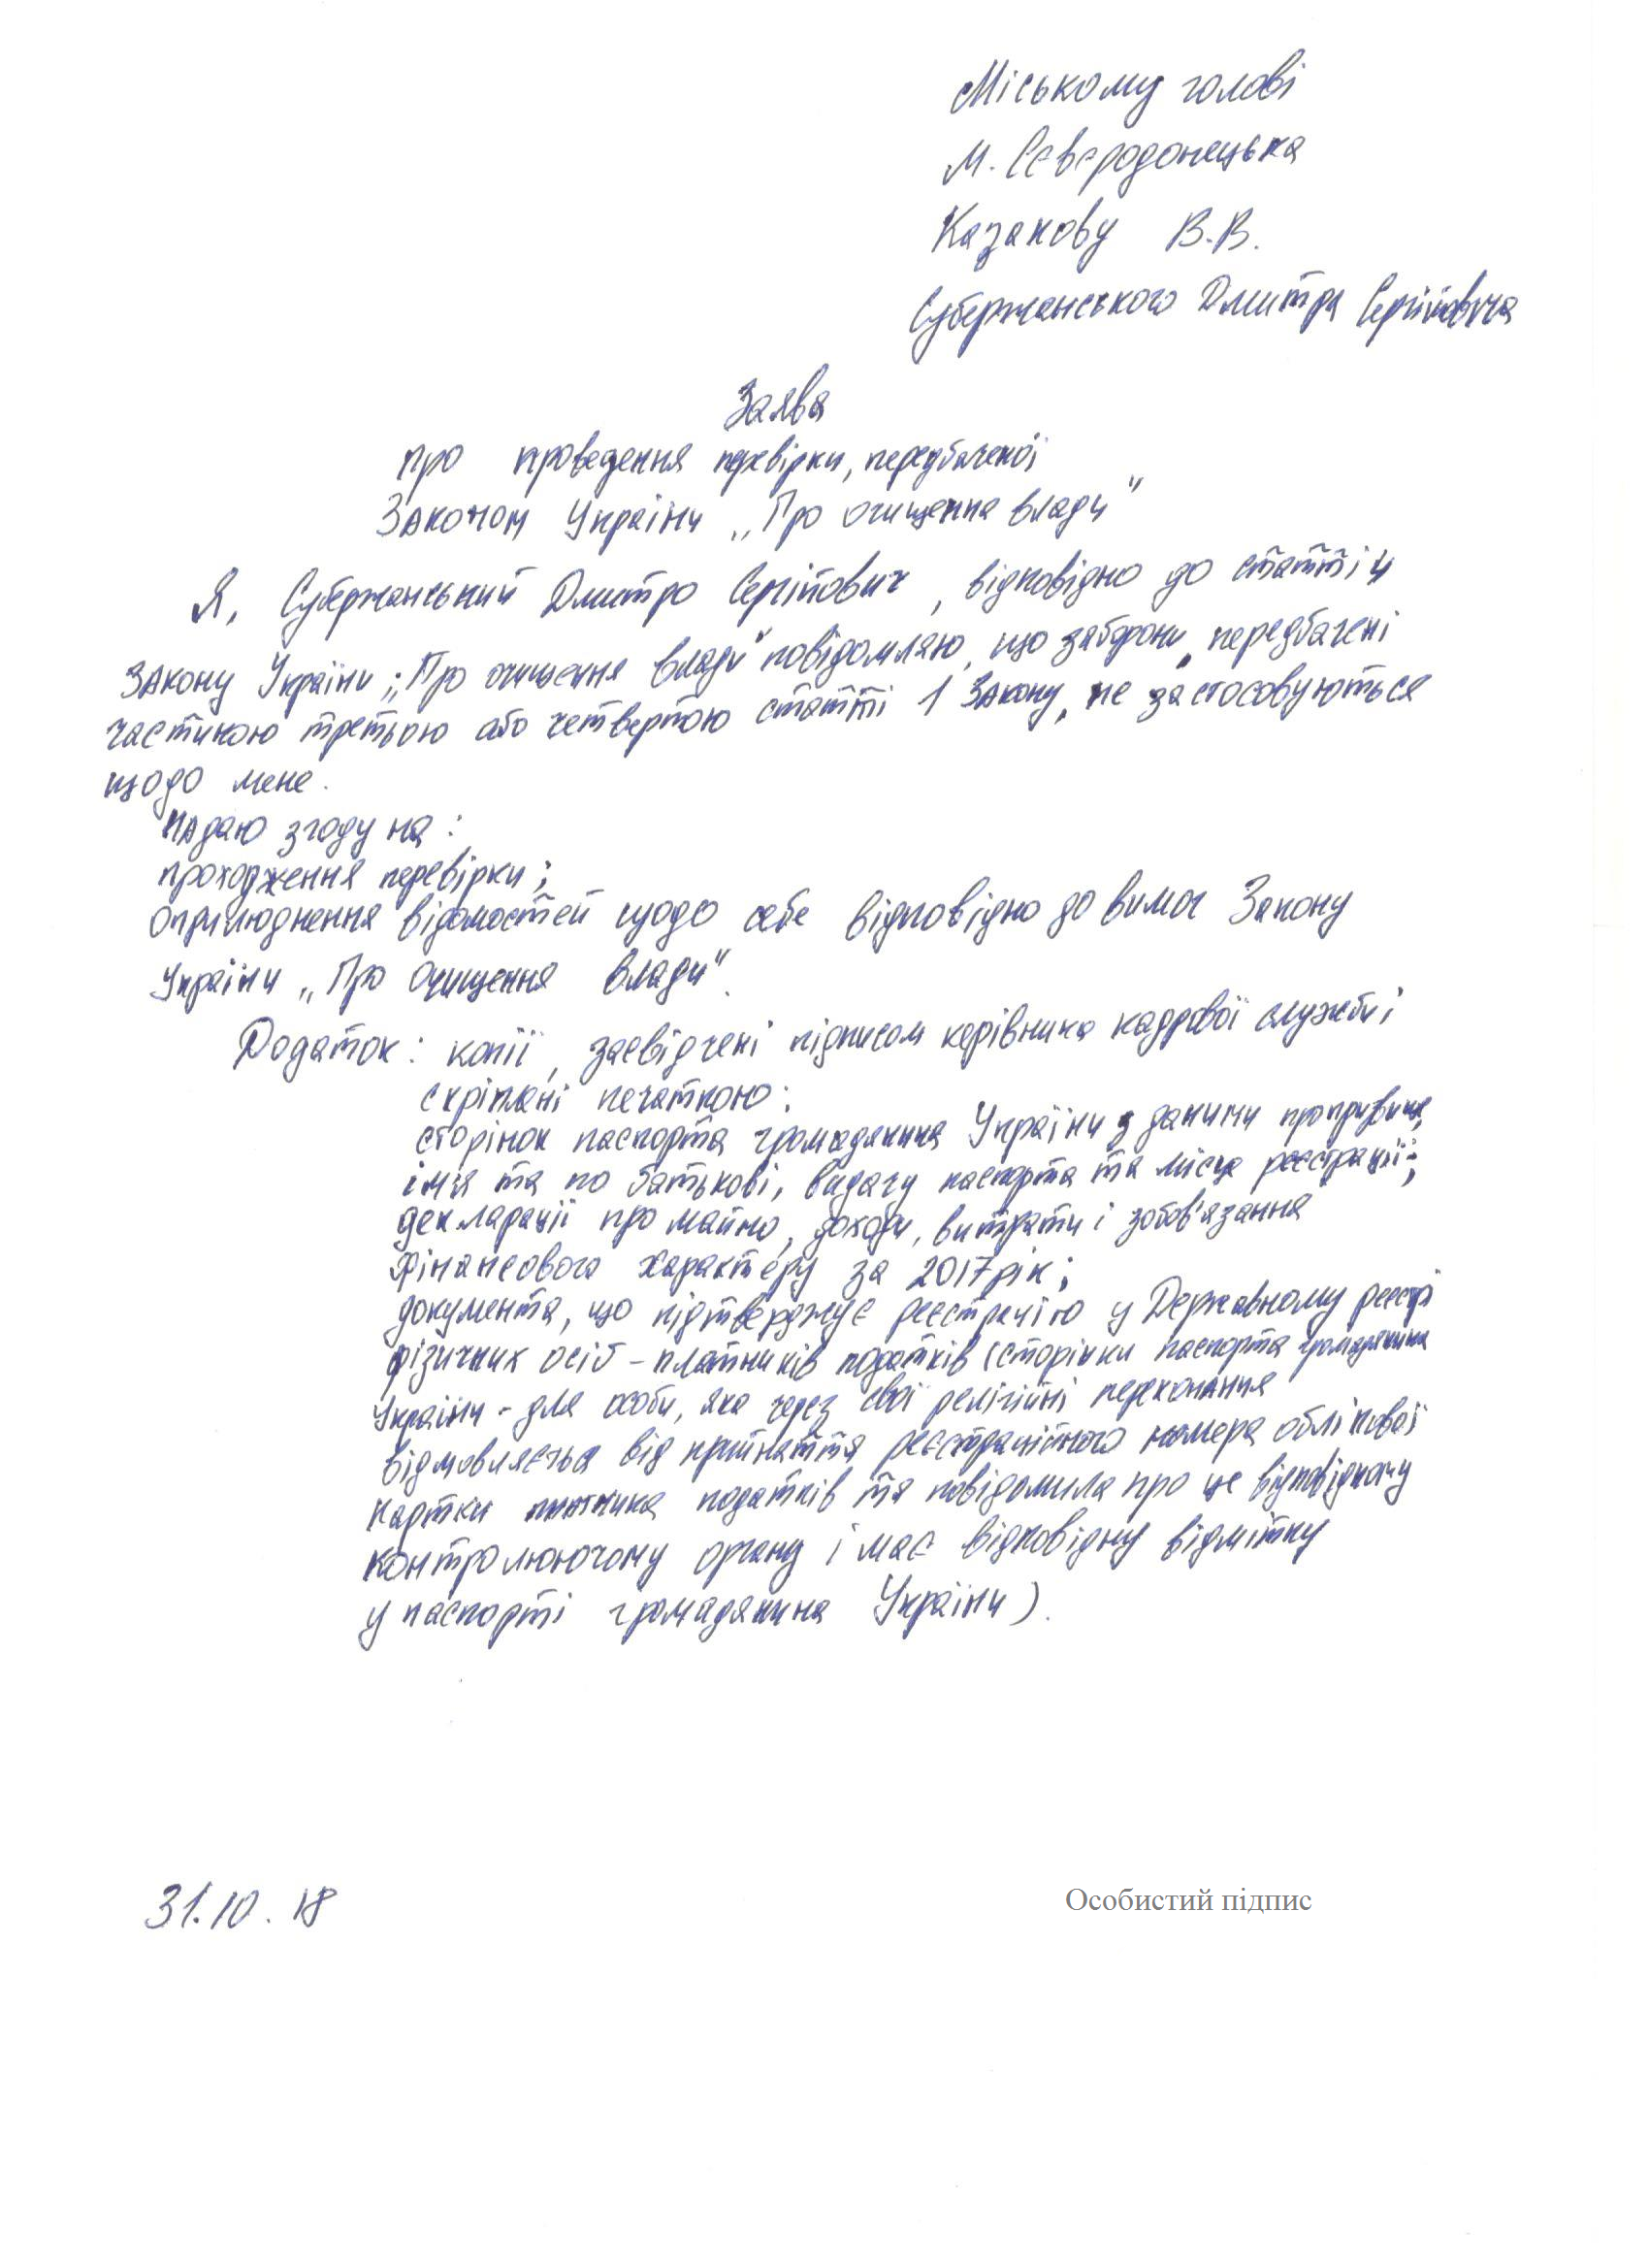 Міському голові
м. Сєвєродонецька
Казакову В.В.
Субержанського Дмитра Сергійовича
Заява
про проведення перевірки, передбаченої
Законом України „Про очищення влади"
Я, Субержанський Дмитро Сергійович, відповідно до статті 4
Закону України „Про очищення влади" повідомляю, що заборони, передбачені
частиною третьою або четвертою статті 1 Закону, не застосовуються
щодо мене.
надаю згоду на:
проходження перевірки;
оприлюднення відомостей щодо себе відповідно до вимог Закону
України „Про очищення влади".
Додаток: копії, засвідчені підписом керівника кадрової служби і
скріплені печаткою:
сторінок паспорта громадянина України з даними про прізвище,
ім'я та по батькові, видачу паспорта та місце реєстрації;
декларації про майно, доходи, витрати і зобов'язання
фінансового характеру за 2017 рік;
документа, що підтверджує реєстрацію у Державному реєстрі
фізичних осіб – платників податків (сторінки паспорта громадянина
України – для особи, яка через свої релігійні переконання
відмовляється від прийняття реєстраційного номера облікової
картки платника податків та повідомила про це відповідному
контролюючому органу і має відповідну відмітку
у паспорті громадянина України).
31.10.18
Особистий підпис